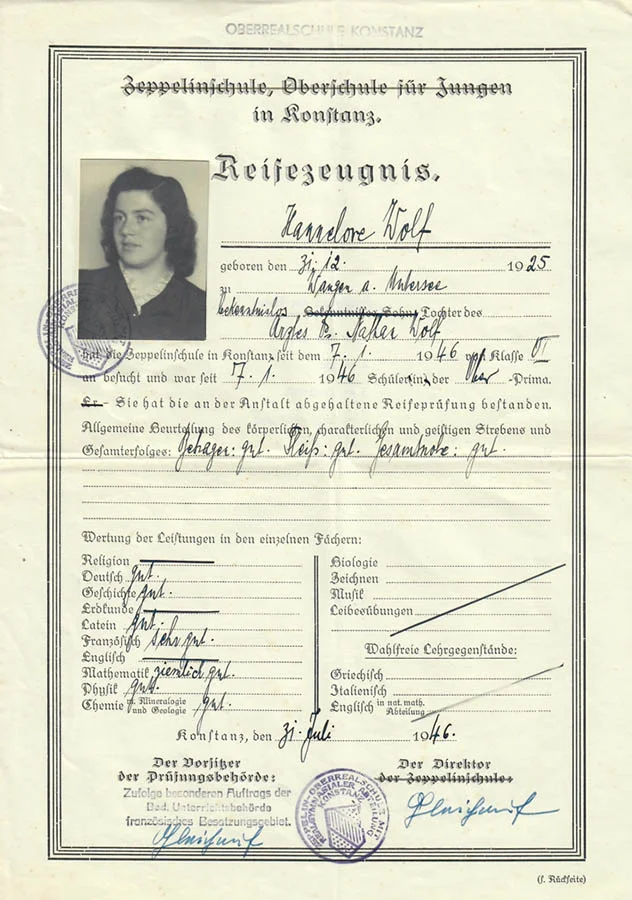 OBERREALSCHULE KONSTANZ
Zeppelinschule, Oberschule für Jungen
in Konstanz.
Reifezeugnis.
Hannelore Wolf
geboren den 31. 12. 1925
zu Wangen a. Untersee
bekenntnislos Bekenntnisses Sohn Tochter des
Arztes Dr. Nathan Wolf
hat die Zeppelinschule in Konstanz seit dem 7. 1. 1946 von Klasse VI
an besucht und war seit 7. 1. 1946 Schüler in der Ober-Prima.
Er - Sie hat die an der Anstalt abgehaltene Reifeprüfung bestanden.
Allgemeine Beurteilung des körperlichen, charakterlichen und geistigen Strebens und
Gesamterfolges: Betragen: gut. Fleiß: gut. Gesamtnote: gut.
Wertung der Leistungen in den einzelnen Fächern:
Religion
Deutsch gut.
Geschichte gut.
Erdkunde
Latein gut.
Französisch sehr gut.
Englisch
Mathematik ziemlich gut.
Physik gut.
Chemie m. Mineralogie und Geologie gut.
Biologie
Zeichnen
Musik
Leibesübungen
Wahlfreie Lehrgegenstände:
Griechisch
Italienisch
Englisch in nat. math. Abteilung
Konstanz, den 31. Juli 1946.
Der Vorsitzer
der Prüfungsbehörde:
Zufolge besonderen Auftrags der
Bad. Unterrichtsbehörde
französisches Besatzungsgebiet.
Der Direktor
der Zeppelinschule:
ZEPPELIN-OBERREALSCHULE MIT
REALGYMNASIALER ABTEILUNG
KONSTANZ
(s. Rückseite)